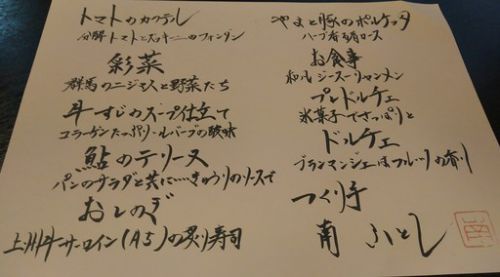 トマトのカクテル
分解トマトとズッキーニのフォンダン
彩菜
群馬のニジマスと野菜たち
牛すじのスープ仕立て
コラーゲンたっぷり・ルバーブの酸味
鮎のテリーヌ
パンのサラダと共に……きゅうりのソースで
おしのぎ
上州牛サーロイン(A5)の炙り寿司
やまと豚のポルケッタ
ハーブ香る肩ロース
お食事
和風ジャージャーメン
プレドルチェ
氷菓子でさっぱりと
ドルチェ
ブランマンジェはフルーツの香り
つくり手
南